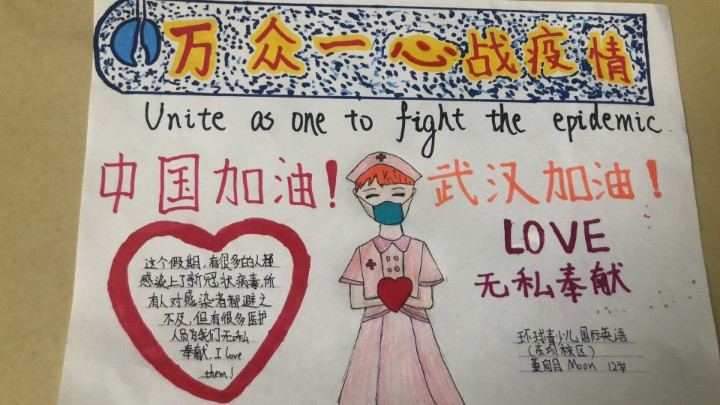 万众一心战疫情
Unite as one to fight the epidemic.
中国加油!
武汉加油!
LOVE
无私奉献
这个假期,有很多的人都
感染上了新冠状病毒,所
有人对感染者都避之
不及,但有很多医护
人员为我们无私
奉献, I love
them!
环球青少儿国际英语
(东坝校区)
Moon 12岁